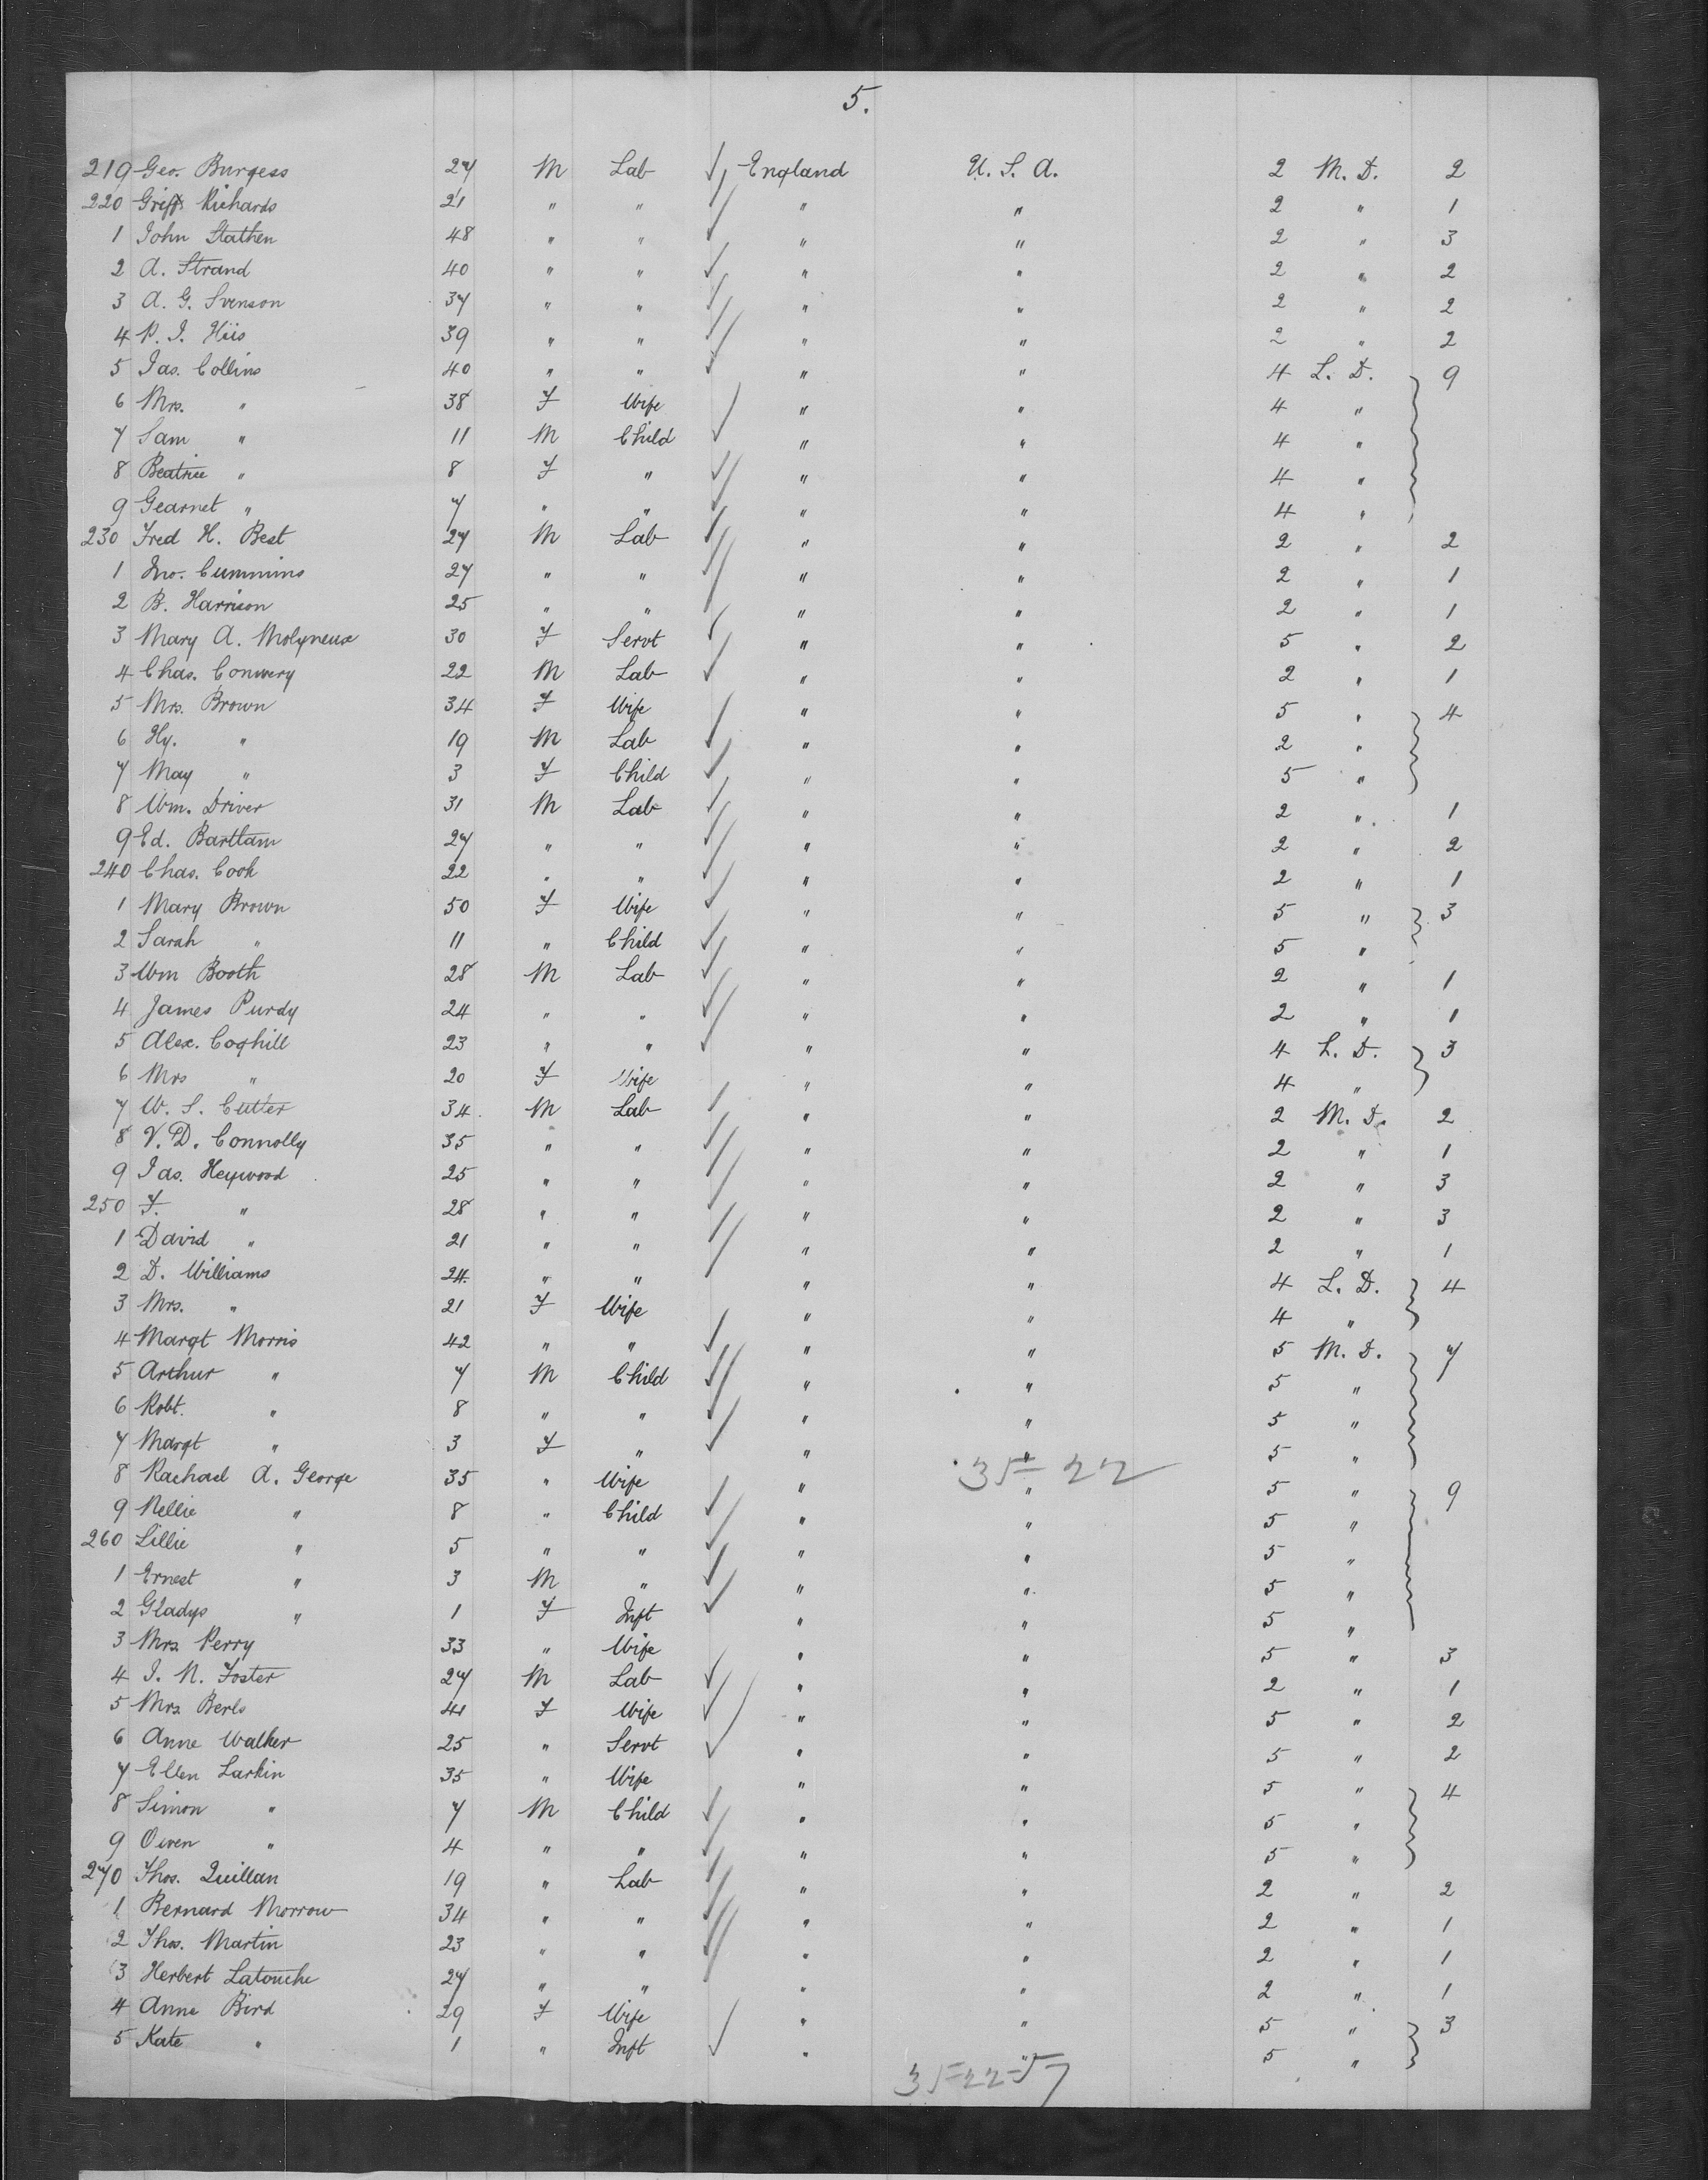 5.
219 Geo. Burgess 27 M Lab England U. S. A. 2 M. D. 2
220 Griff Richards 21 " " " " 2 " 1
1 John Stathen 48 " " " " 2 " 3
2 A. Strand 40 " " " " 2 " 2
3 A. G. Svenson 37 " " " " 2 " 2
4 P. I. Hiis 39 " " " " 2 " 2
5 Jas. Collins 40 " " " " 4 L. D. 9
6 Mrs. " 38 F Wife " " 4 "
7 Sam " 11 M Child " " 4 "
8 Beatrice " 8 F " " " 4 "
9 Gearnet " 7 " " " " 4 "
230 Fred H. Best 27 M Lab " " 2 " 2
1 Jno. Cummins 27 " " " " 2 " 1
2 B. Harrison 25 " " " " 2 " 1
3 Mary A. Molyneux 30 F Servt " " 5 " 2
4 Chas. Conwery 22 M Lab " " 2 " 1
5 Mrs. Brown 34 F Wife " " 5 " 4
6 Hy. " 19 M Lab " " 2 "
7 May " 3 F Child " " 5 "
8 Wm. Driver 31 M Lab " " 2 " 1
9 Ed. Bartlam 27 " " " " 2 " 2
240 Chas. Cook 22 " " " " 2 " 1
1 Mary Brown 50 F Wife " " 5 " 3
2 Sarah " 11 " Child " " 5 "
3 Wm Booth 28 M Lab " " 2 " 1
4 James Purdy 24 " " " " 2 " 1
5 Alex. Coghill 23 " " " " 4 L. D. 3
6 Mrs " 20 F Wife " " 4 "
7 W. S. Cutter 34 M Lab " " 2 M. D. 2
8 V. D. Connolly 35 " " " " 2 " 1
9 Jas. Heywood 25 " " " " 2 " 3
250 F. " 28 " " " " 2 " 3
1 David " 21 " " " " 2 " 1
2 D. Williams 24 " " " " 4 L. D. 4
3 Mrs. " 21 F Wife " " 4 "
4 Margt Morris 42 " " " " 5 M. D. 7
5 Arthur " 7 M Child " " 5 "
6 Robt. " 8 " " " " 5 "
7 Margt " 3 F " " " 5 "
35-22
8 Rachael A. George 35 " Wife " " 5 " 9
9 Nellie " 8 " Child " " 5 "
260 Lillie " 5 " " " " 5 "
1 Ernest " 3 M " " " 5 "
2 Gladys " 1 F Inft " " 5 "
3 Mrs. Perry 33 " Wife " " 5 " 3
4 I. N. Foster 27 M Lab " " 2 " 1
5 Mrs. Berls 41 F Wife " " 5 " 2
6 Anne Walker 25 " Servt " " 5 " 2
7 Ellen Larkin 35 " Wife " " 5 " 4
8 Simon " 7 M Child " " 5 "
9 Owen " 4 " " " " 5 "
270 Thos. Quillan 19 " Lab " " 2 " 2
1 Bernard Morrow 34 " " " " 2 " 1
2 Thos. Martin 23 " " " " 2 " 1
3 Herbert Latouche 27 " " " " 2 " 1
4 Anne Bird 29 F Wife " " 5 " 3
5 Kate " 1 " Inft " " 5 "
35-22-57